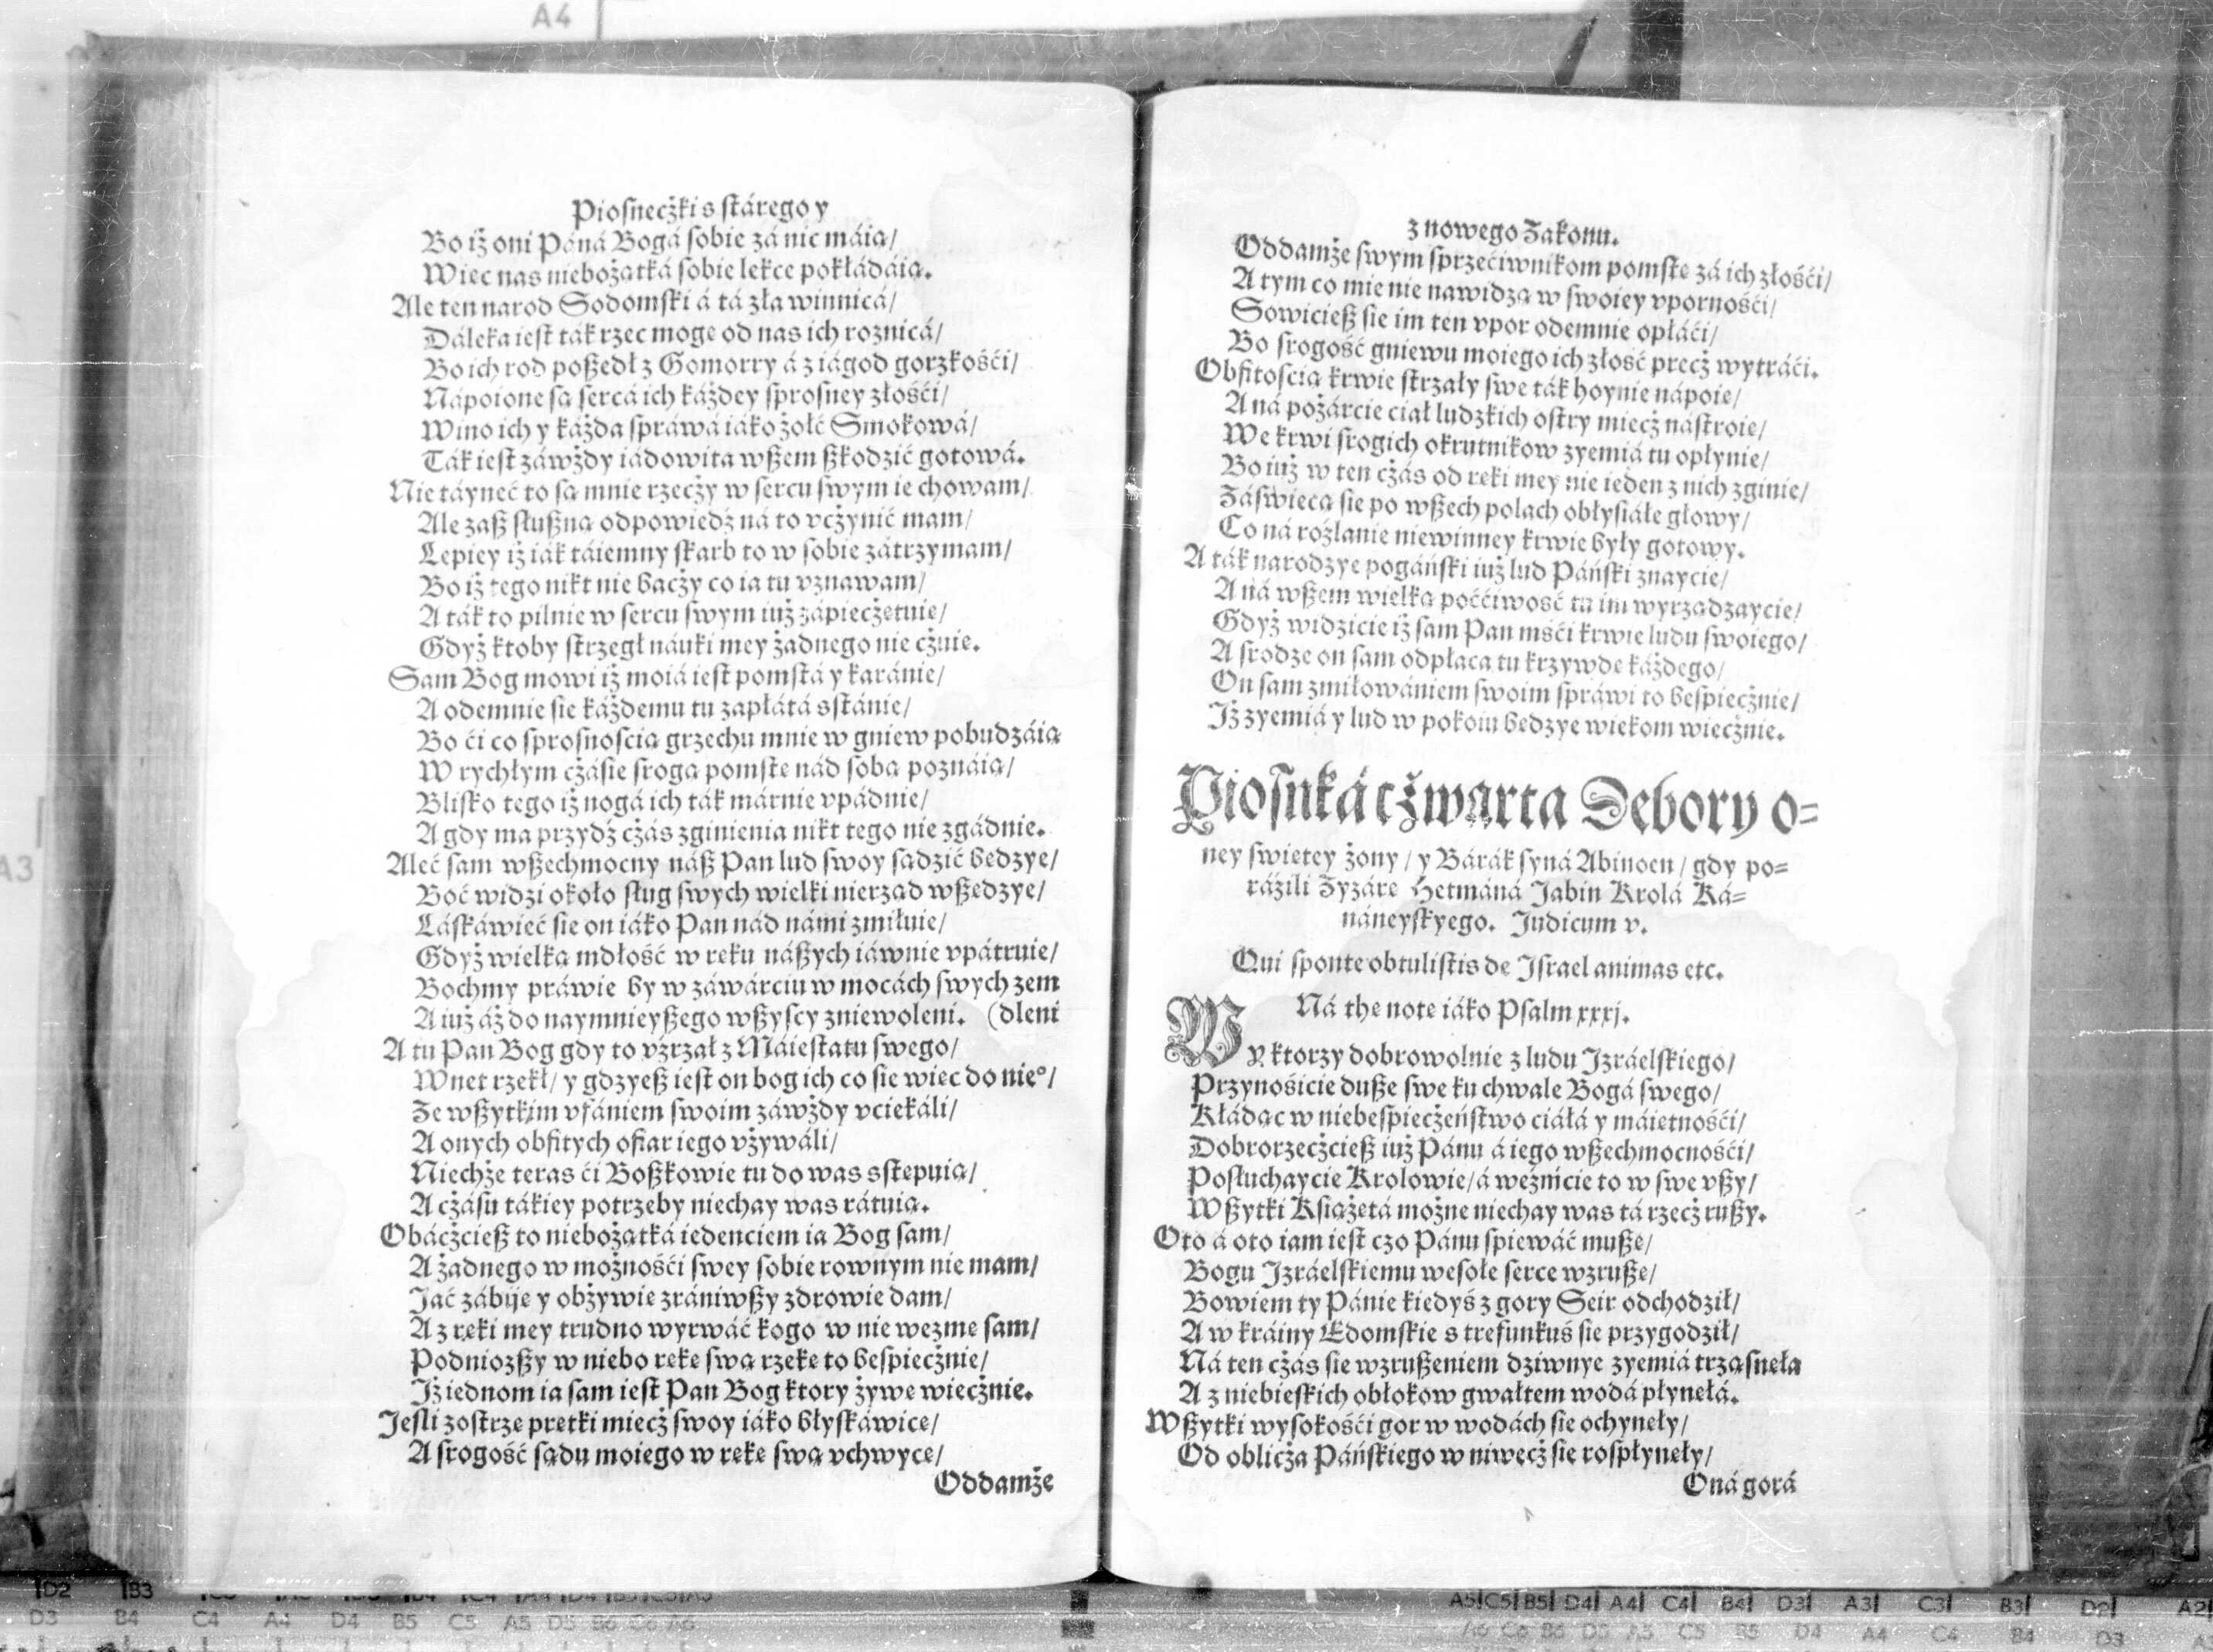 Piosnecżki s stárego y
Bo iż oni Páná Bogá sobie zá nic máią/
Więc nas niebożątká sobie lekce pokłádáią.
Ale ten narod Sodomski á tá zła winnicá/
Dáleka iest ták rzec mogę od nas ich roznicá/
Bo ich rod poszedł z Gomorry á z iágod gorzkośći/
Nápoione są sercá ich káżdey sprosney złośći/
Wino ich y każda spráwá iáko żołć Smokowá/
Ták iest záwżdy iádowita wszem szkodzić gotowá.
Nie táyneć to są mnie rzecży w sercu swym ie chowam/
Ale zasz słuszną odpowiedź ná to vcżynić mam/
Lepiey iż iák táiemny skarb to w sobie zátrzymam/
Bo iż tego nikt nie bacży co ia tu vznawam/
A ták to pilnie w sercu swym iuż zápiecżętuię/
Gdyż ktoby strzegł náuki mey żadnego nie cżuię.
Sam Bog mowi iż moiá iest pomstá y karánie/
A odemnie sie káżdemu tu zapłátá sstánie/
Bo ći co sprosnoscią grzechu mnie w gniew pobudzáią
W rychłym cżásie srogą pomstę nád sobą poznáią/
Blisko tego iż nogá ich ták márnie vpádnie/
A gdy ma przydź cżás zginienia nikt tego nie zgádnie.
Aleć sam wszechmocny nász Pan lud swoy sądzić będzye/
Boć widzi około sług swych wielki nierząd wszędzye/
Láskáwieć sie on iáko Pan nád námi zmiłuie/
Gdyż wielką mdłość w ręku nászych iáwnie vpátruie/
Bochmy práwie by w záwárciu w mocách swych zem
A iuż áż do naymnieyszego wszyscy zniewoleni. (dleni
A tu Pan Bog gdy to vźrzał z Máiestatu swego/
Wnet rzekł/ y gdzyesz iest on bog ich co sie więc do nieº/
Ze wszytkim vfániem swoim záwżdy vciekáli/
A onych obfitych ofiar iego vżywáli/
Niechże teras ći Boszkowie tu do was sstępuią/
A cżásu tákiey potrzeby niechay was rátuią.
Obácżciesz to niebożątká iedenciem ia Bog sam/
A żadnego w możnośći swey sobie rownym nie mam/
Jać zábiję y obżywię zrániwszy zdrowie dam/
A z ręki mey trudno wyrwáć kogo w nię wezmę sam/
Podniozszy w niebo rękę swą rzekę to bespiecżnie/
Iż iednom ia sam iest Pan Bog ktory żywę wiecżnie.
Jesli zostrzę prętki miecż swoy iáko błyskáwicę/
A srogość sądu moiego w rękę swą vchwycę/
Oddamże
z nowego Zakonu.
Oddamże swym sprzećiwnikom pomstę zá ich złośći/
A tym co mię nie nawidzą w swoiey vpornośći/
Sowiciesz sie im ten vpor odemnie opłáći/
Bo srogość gniewu moiego ich złość precż wytráći.
Obfitoscią krwie strzały swe ták hoynie nápoię/
A ná pożárcie ciał ludzkich ostry miecż nástroię/
We krwi srogich okrutnikow zyemiá tu opłynie/
Bo iuż w ten cżás od ręki mey nie ieden z nich zginie/
Záświecą sie po wszech polach obłysiáłe głowy/
Co ná rozlanie niewinney krwie były gotowy.
A ták narodzye pogáński iuż lud Páński znaycie/
A ná wszem wielką poććiwość tu im wyrządzaycie/
Gdyż widzicie iż sam Pan mśći krwie ludu swoiego/
A srodze on sam odpłaca tu krzywdę káżdego/
On sam zmiłowániem swoim spráwi to bespiecżnie/
Iż zyemiá y lud w pokoiu będzye wiekom wiecżnie.
Piosnká cżwarta Debory o-
ney swiętey żony / y Bárák syná Abinoen / gdy po-
ráźili Zyzárę Hetmáná Jabin Krolá Ká-
náneyskyego. Judicum v.
Qui sponte obtulistis de Israel animas etc.
Ná thę notę iáko Psalm xxxj.
Wy ktorzy dobrowolnie z ludu Izráelskiego/
Przynośicie dusze swe ku chwale Bogá swego/
Kłádąc w niebespiecżeństwo ciáłá y máiętnośći/
Dobrorzecżciesz iuż Pánu á iego wszechmocnośći/
Posłuchaycie Krolowie/ á weźmicie to w swe vszy/
Wszytki Książętá możne niechay was tá rzecż ruszy.
Oto á oto iam iest czo Pánu spiewáć muszę/
Bogu Izráelskiemu wesołe serce wzruszę/
Bowiem ty Pánie kiedyś z gory Seir odchodził/
A w kráiny Edomskie s trefunkuś sie przygodził/
Ná ten cżás sie wzruszeniem dziwnye zyemiá trząsnęła
A z niebieskich obłokow gwałtem wodá płynęłá.
Wszytki wysokośći gor w wodách sie ochynęły/
Od oblicża Páńskiego w niwecż sie rospłynęły/
Oná gorá